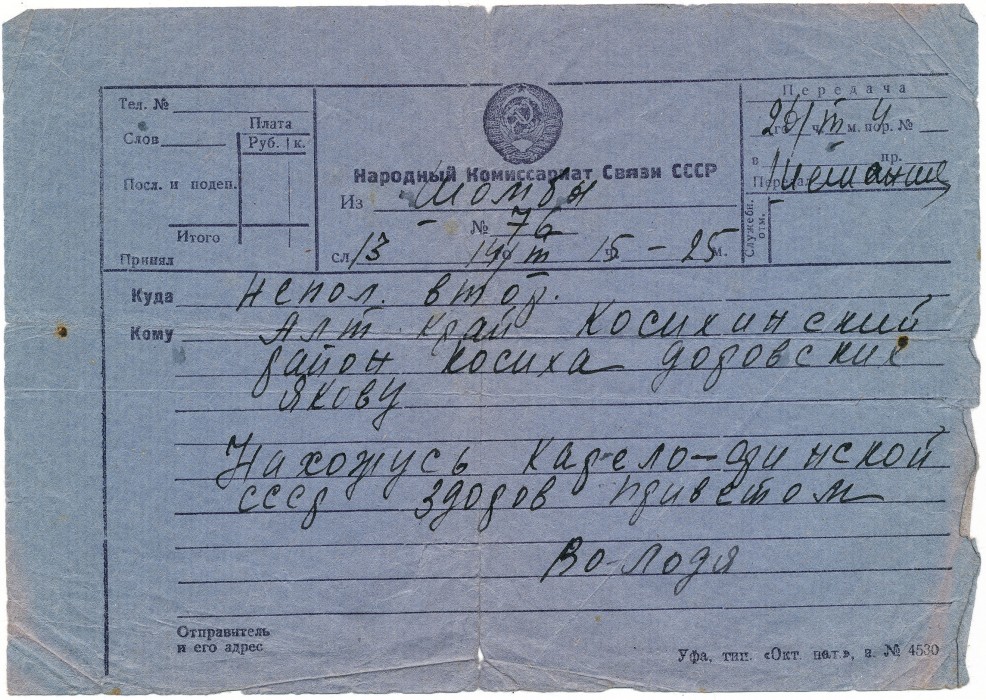 Тел. №
Слов
Плата
Руб. к.
Посл. и подеп.
Итого
Принял
Народный Комиссариат Связи СССР
Из
№ 76
сл 13 19/III 15 ч. - 25 м.
Передача
20/III го ч. м. пор. № 4
в пр.
Передал
Служебн. отм.
Куда непол. втор.
Кому Алт край Косихинский
район Косиха Доровских
Якову
Нахожусь Карело-финской
СССР здоров приветом
Володя
Отправитель
и его адрес
Уфа, тип. «Окт. нат.», з. № 4530